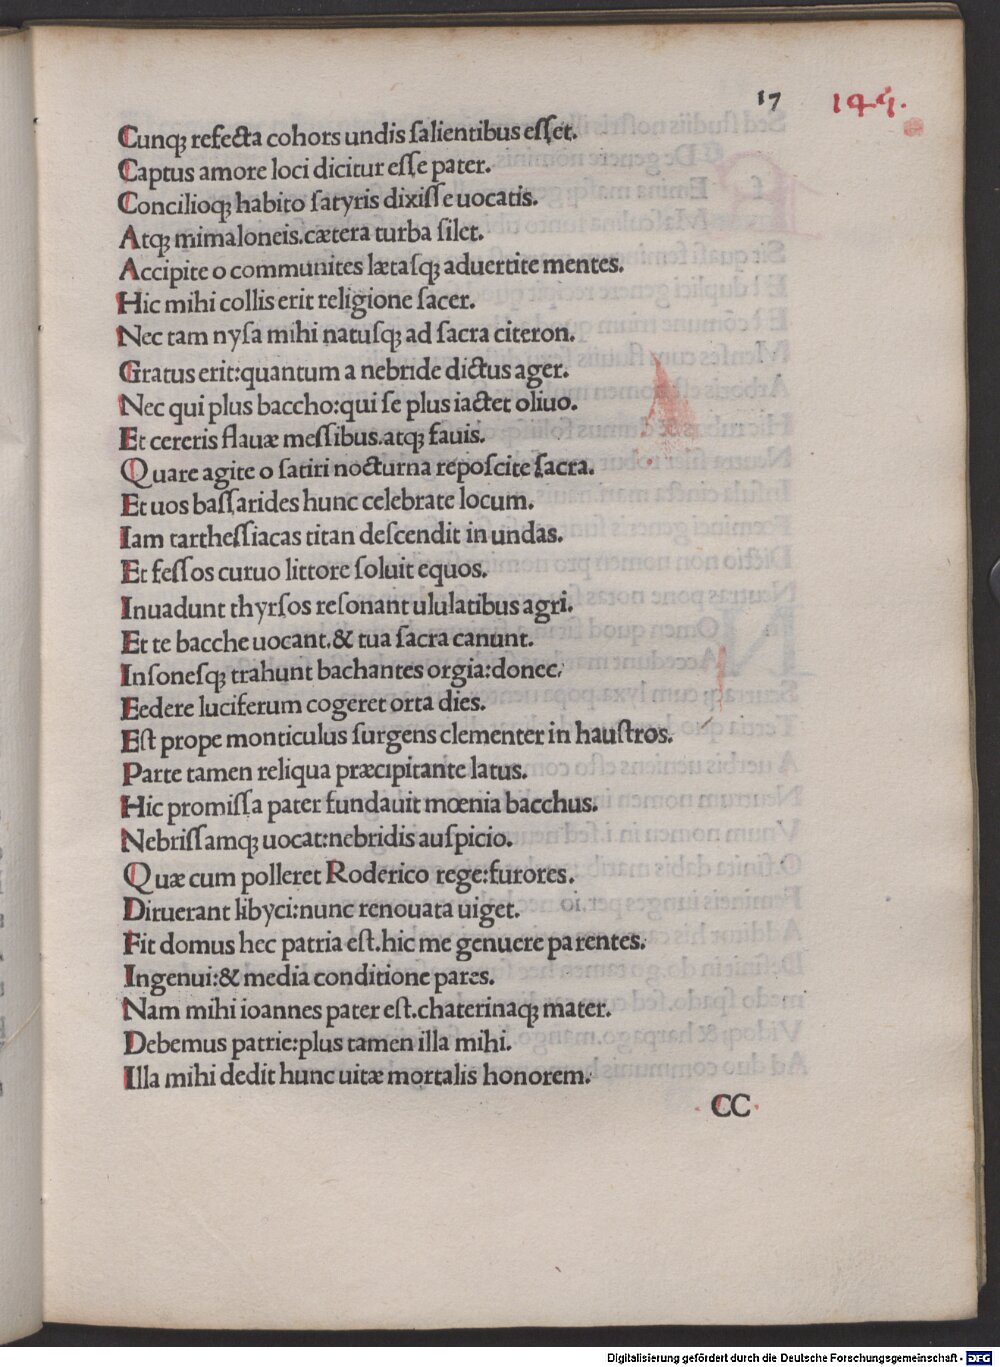 17 145.
Cunqꝫ refecta cohors undis ſalientibus eſſet.
Captus amore loci dicitur eſſe pater.
Concilioqꝫ habito ſatyris dixiſſe uocatis.
Atqꝫ mimaloneis.cætera turba ſilet.
Accipite o communites lætaſqꝫ aduertite mentes.
Hic mihi collis erit religione ſacer.
Nec tam nyſa mihi natuſqꝫ ad ſacra citeron.
Gratus erit:quantum a nebride dictus ager.
Nec qui plus baccho:qui ſe plus iactet oliuo.
Et cereris flauæ meſſibus.atqꝫ fauis.
Quare agite o ſatiri nocturna repoſcite ſacra.
Et uos baſſarides hunc celebrate locum.
Iam tartheſſiacas titan deſcendit in undas.
Et feſſos curuo littore ſoluit equos.
Inuadunt thyrſos reſonant ululatibus agri.
Et te bacche uocant.& tua ſacra canunt.
Inſoneſqꝫ trahunt bachantes orgia:donec.
Eedere luciferum cogeret orta dies.
Eſt prope monticulus ſurgens clementer in hauſtros.
Parte tamen reliqua præcipitante latus.
Hic promiſſa pater fundauit mœnia bacchus.
Nebriſſamqꝫ uocat:nebridis auſpicio.
Quæ cum polleret Roderico rege:furores.
Diruerant libyci:nunc renouata uiget.
Fit domus hec patria eſt.hic me genuere parentes.
Ingenui:& media conditione pares.
Nam mihi ioannes pater eſt.chaterinaqꝫ mater.
Debemus patrie:plus tamen illa mihi.
Illa mihi dedit hunc uitæ mortalis honorem.
CC
Digitalisierung gefördert durch die Deutsche Forschungsgemeinschaft - DFG